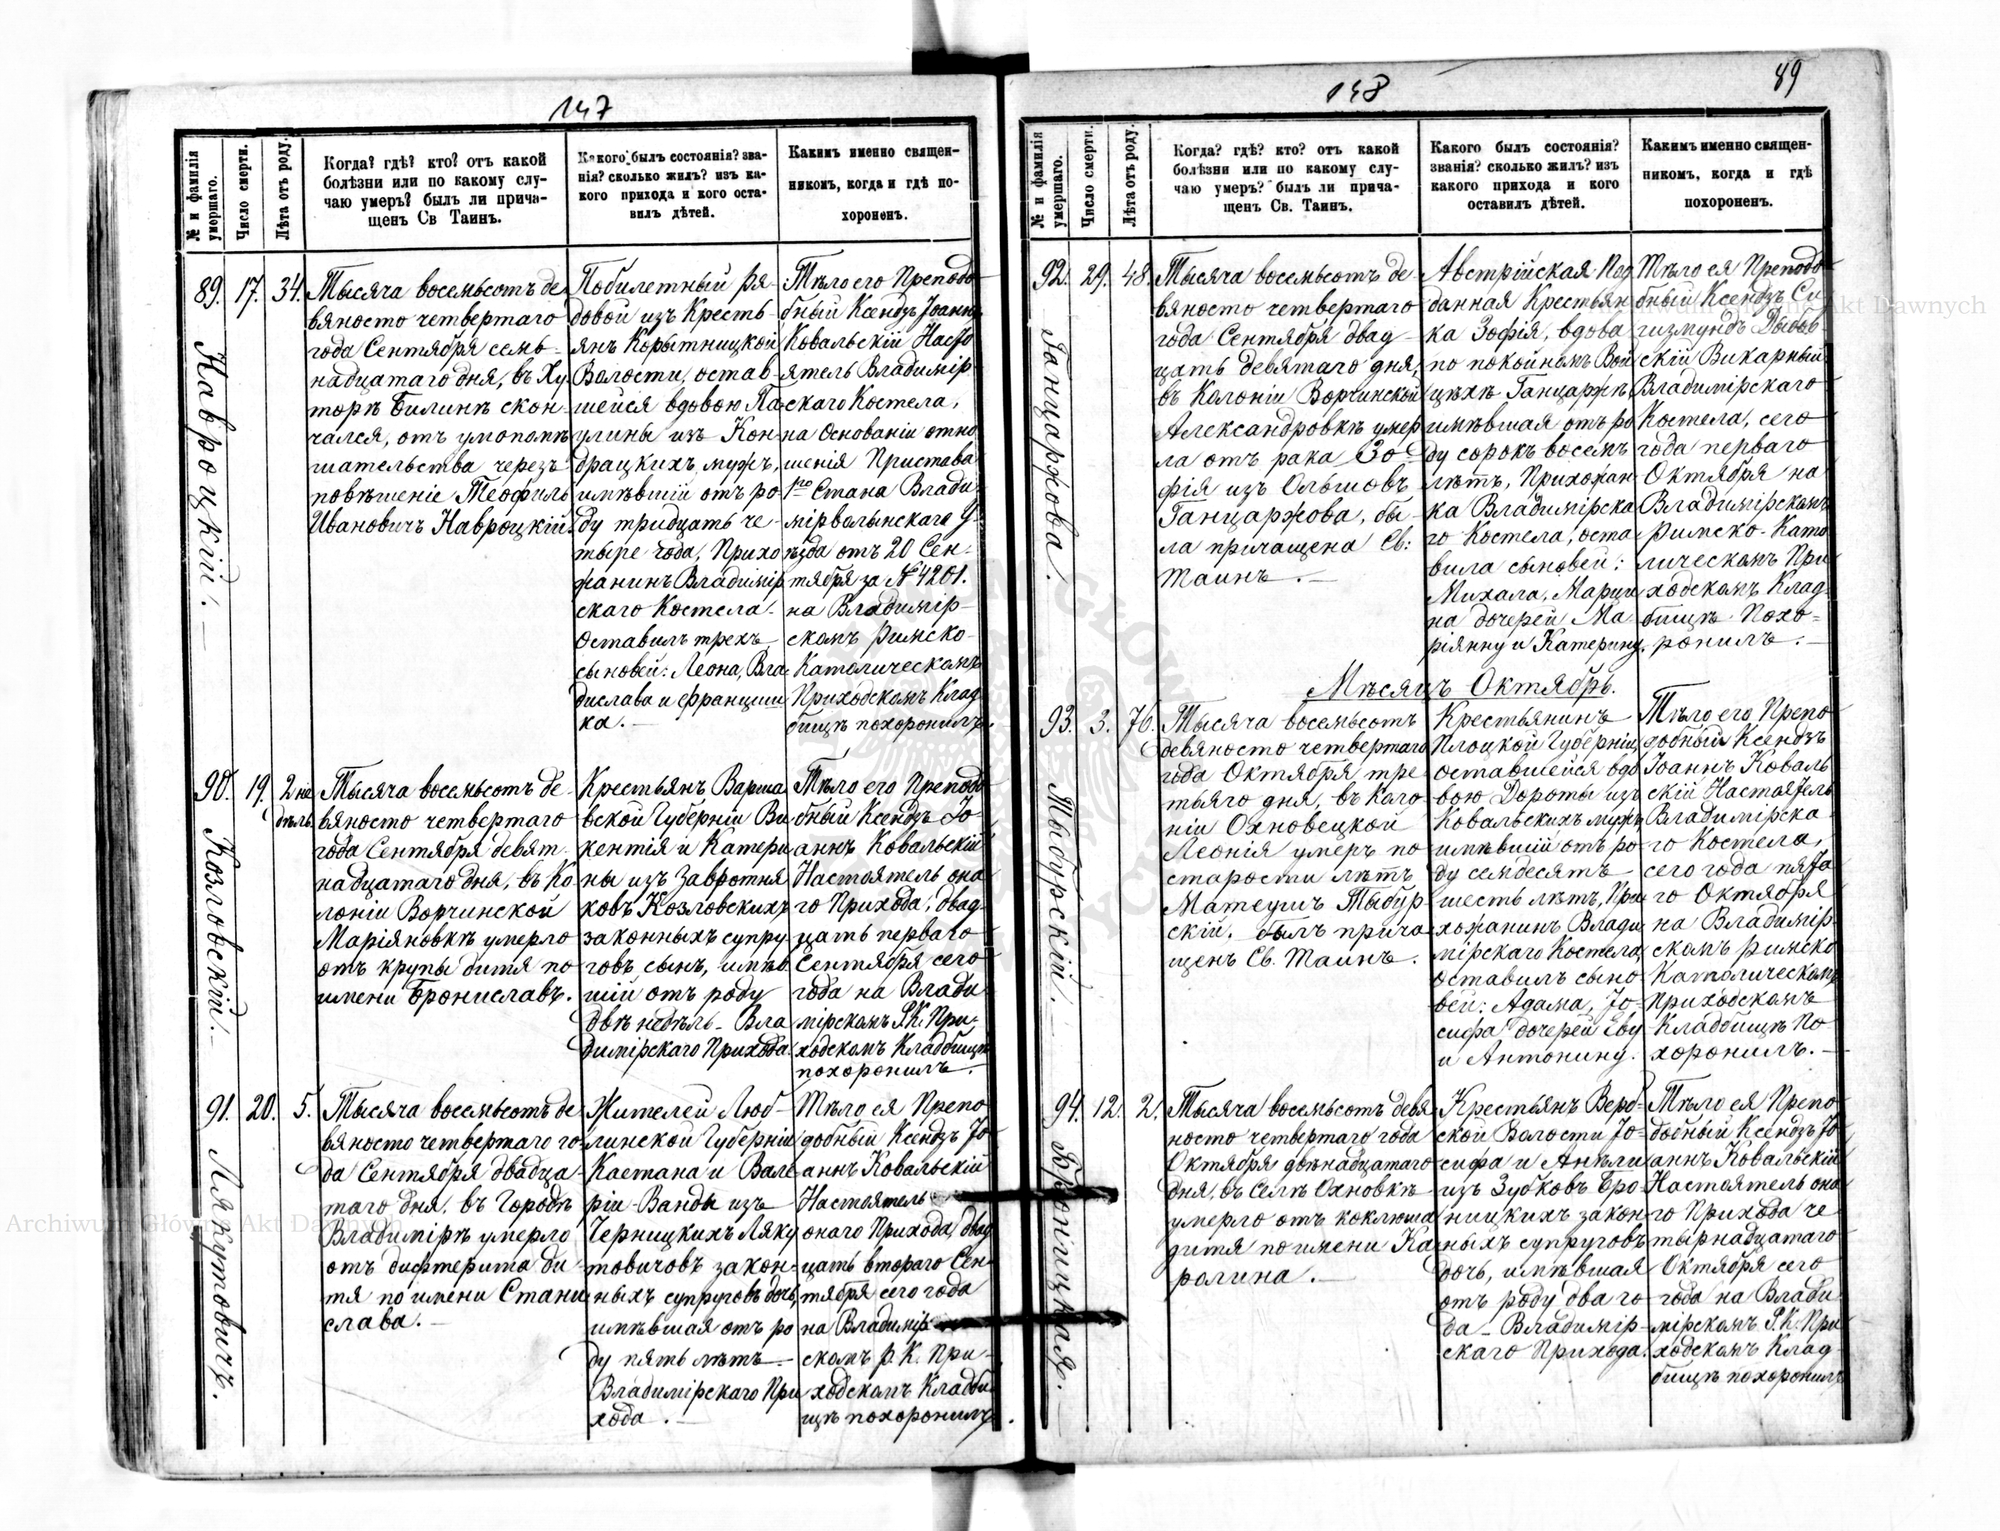 147
№ и фамилія умершаго.
Число смерти.
Лѣта отъ роду.
Когда? гдѣ? кто? отъ какой
болѣзни или по какому слу-
чаю умеръ? былъ ли прича-
щенъ Св Таинъ.
Какого былъ состоянія? зва-
нія? сколько жилъ? изъ ка-
кого прихода и кого оста-
вилъ дѣтей.
Какимъ именно священ-
никомъ, когда и гдѣ по-
хороненъ.
89.
Навроцкій.
17.
34.
Тысяча восемьсотъ де
вяносто четвертаго
года Сентября семь-
надцатаго дня, въ Ху
торѣ Билинѣ скон-
чался, отъ умопомѣ
шательства черезъ
повѣшеніе Теофиль
Ивановичъ Навроцкій.
Побилетный ря-
довой изъ Кресть-
янъ Корытницкой
Волости, остав-
шейся вдовою Па
улины изъ Кон-
драцкихъ мужъ,
имѣвшій отъ ро-
ду тридцать че-
тыре года, Прихо
жанинъ Владимір
скаго Костела.
Оставилъ трехъ
сыновей: Леона, Вла-
дислава и Францишка.
Тѣло его Преподо
бный Ксендзъ Іоаннъ
Ковальскій Насто
ятель Владимір-
скаго Костела,
на основаніи отно
шенія Пристава
1го Стана Влади-
мірволынскаго У-
ѣзда отъ 20 Сен-
тября за № 4201.
на Владимір-
скомъ Римско-
Католическомъ
Приходскомъ Клад
бищѣ похоронилъ.
90.
Козловскій.
19.
2 не
дѣль.
Тысяча восемьсотъ де-
вяносто четвертаго
года Сентября девят-
надцатаго дня, въ Ко
лоніи Ворчинской
Маріяновкѣ умерло
отъ крупы дитя по
имени Брониславъ.
Крестьянъ Варша
вской Губерніи Ви
кентія и Катери
ны изъ Завротня
ковъ Козловскихъ
законныхъ супру-
говъ сынъ, имѣв
шій отъ роду
двѣ недѣль - Вла
димірскаго Прихода.
Тѣло его Преподо
бный Ксендзъ Іо-
аннъ Ковальскій
Настоятель она
го Прихода, двад
цать перваго
Сентября сего
года на Влади-
мірскомъ Р.К. При-
ходскомъ Кладбищѣ
похоронилъ.
91.
Лякутовичъ.
20.
5.
Тысяча восемьсотъ де
вяносто четвертаго го-
да Сентября двадца-
таго дня, въ Городѣ
Владимірѣ умерло
отъ дифтерита ди-
тя по имени Стани
слава.
Жителей Люб-
линской Губерніи
Каетана и Вале
ріи-Ванды изъ
Черницкихъ Ляку
товичовъ закон-
ныхъ супруговъ дочь,
имѣвшая отъ ро
ду пять лѣтъ
Владимірскаго При
хода.
Тѣло ея Препо-
добный Ксендзъ Іо
аннъ Ковальскій
Настоятель
онаго Прихода, двад
цать втораго Сен-
тября сего года
на Владимір
скомъ Р. К. При-
ходскомъ Кладби
щѣ похоронилъ.
148
89
№ и фамилія умершаго.
Число смерти.
Лѣта отъ роду.
Когда? гдѣ? кто? отъ какой
болѣзни или по какому слу-
чаю умеръ? былъ ли прича-
щенъ Св. Таинъ.
Какого былъ состоянія?
званія? сколько жилъ? изъ
какого прихода и кого
оставилъ дѣтей.
Какимъ именно священ-
никомъ, когда и гдѣ
похороненъ.
92.
Ганцаржова.
29.
48.
Тысяча восемьсотъ де-
вяносто четвертаго
года Сентября двад-
цать девятаго дня,
въ Колоніи Ворчинской
Александровкѣ умер
ла отъ рака Зо-
фія изъ Ольшовъ
Ганцаржова, бы-
ла причащена Св:
Таинъ.
Австрійская Под
данная Крестьян
ка Зофія, вдова
по покойномъ Вой
цѣхѣ Ганцаржѣ
имѣвшая отъ ро
ду сорокъ восемь
лѣтъ, Прихожан
ка Владимірска
го Костела, оста
вила сыновей:
Михала, Марци
на дочерей Ма-
ріянну и Катерину.
Тѣло ея Преподо
бный Ксендзъ Си
гизмундъ Дыбов-
скій Викарный
Владимірскаго
Костела, сего
года перваго
Октября на
Владимірскомъ
Римско-Като
лическомъ При
ходскомъ Клад-
бищѣ похо-
ронилъ.
Мѣсяцъ Октябрь.
93.
Тыбурскій.
3.
76.
Тысяча восемьсотъ
девяносто четвертаго
года Октября тре-
тьяго дня, въ Коло-
ніи Охновецкой
Леонія умеръ по
старости лѣтъ
Матеушъ Тыбур-
скій. былъ прича
щенъ Св. Таинъ.
Крестьянинъ
Плоцкой Губерніи,
оставшейся вдо
вою Дороты изъ
Ковальскихъ мужъ
имѣвшій отъ ро
ду семдесятъ
шесть лѣтъ, При
хожанинъ Влади
мірскаго Костела,
оставилъ сыно-
вей: Адама, Іо-
сифа дочерей Еву
и Антонину.
Тѣло его Препо-
добный Ксендзъ
Іоаннъ Коваль
скій Настоятель
Владимірска-
го Костела,
сего года пята
го Октября
на Владимір-
скомъ Римско
Католическомъ
Приходскомъ
Кладбищѣ по
хоронилъ.
94.
Броницкая.
12.
2.
Тысяча восемьсотъ девя
носто четвертаго года
Октября двѣнадцатаго
дня, въ Селѣ Охновкѣ
умерло отъ коклюша
дитя по имени Ка
ролина.
Крестьянъ Верб-
ской Волости Іо-
сифа и Анѣли
изъ Зубковъ Бро-
ницкихъ закон-
ныхъ супруговъ
дочь, имѣвшая
отъ роду два го-
да - Владимір-
скаго Прихода.
Тѣло ея Препо-
добный Ксендзъ Іо-
аннъ Ковальскій
Настоятель она
го Прихода че
тырнадцатаго
Октября сего
года на Влади
мірскомъ Р.К. При
ходскомъ Клад-
бищѣ похоронилъ
Archiwum Główne Akt Dawnych
Archiwum Główne Akt Dawnych